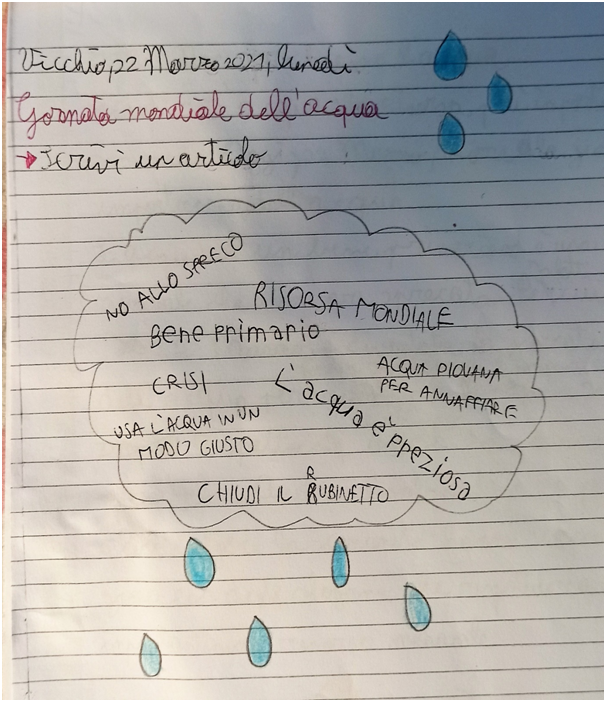 Vicchio, 22 Marzo 2021, lunedì
Giornata mondiale dell'acqua
→ Scrivi un articolo
NO ALLO SPRECO
RISORSA MONDIALE
Bene primario
CRISI
L'acqua è preziosa
ACQUA PIOVANA
PER ANNAFFIARE
USA L'ACQUA IN UN
MODO GIUSTO
CHIUDI IL RUBINETTO